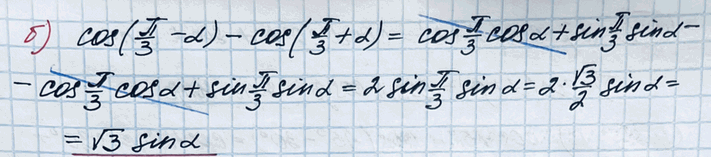 б) cos(π/3 - α) - cos(π/3 + α) = cos π/3 cos α + sin π/3 sin α -
- cos π/3 cos α + sin π/3 sin α = 2 sin π/3 sin α = 2 · √3/2 sin α =
= √3 sin α